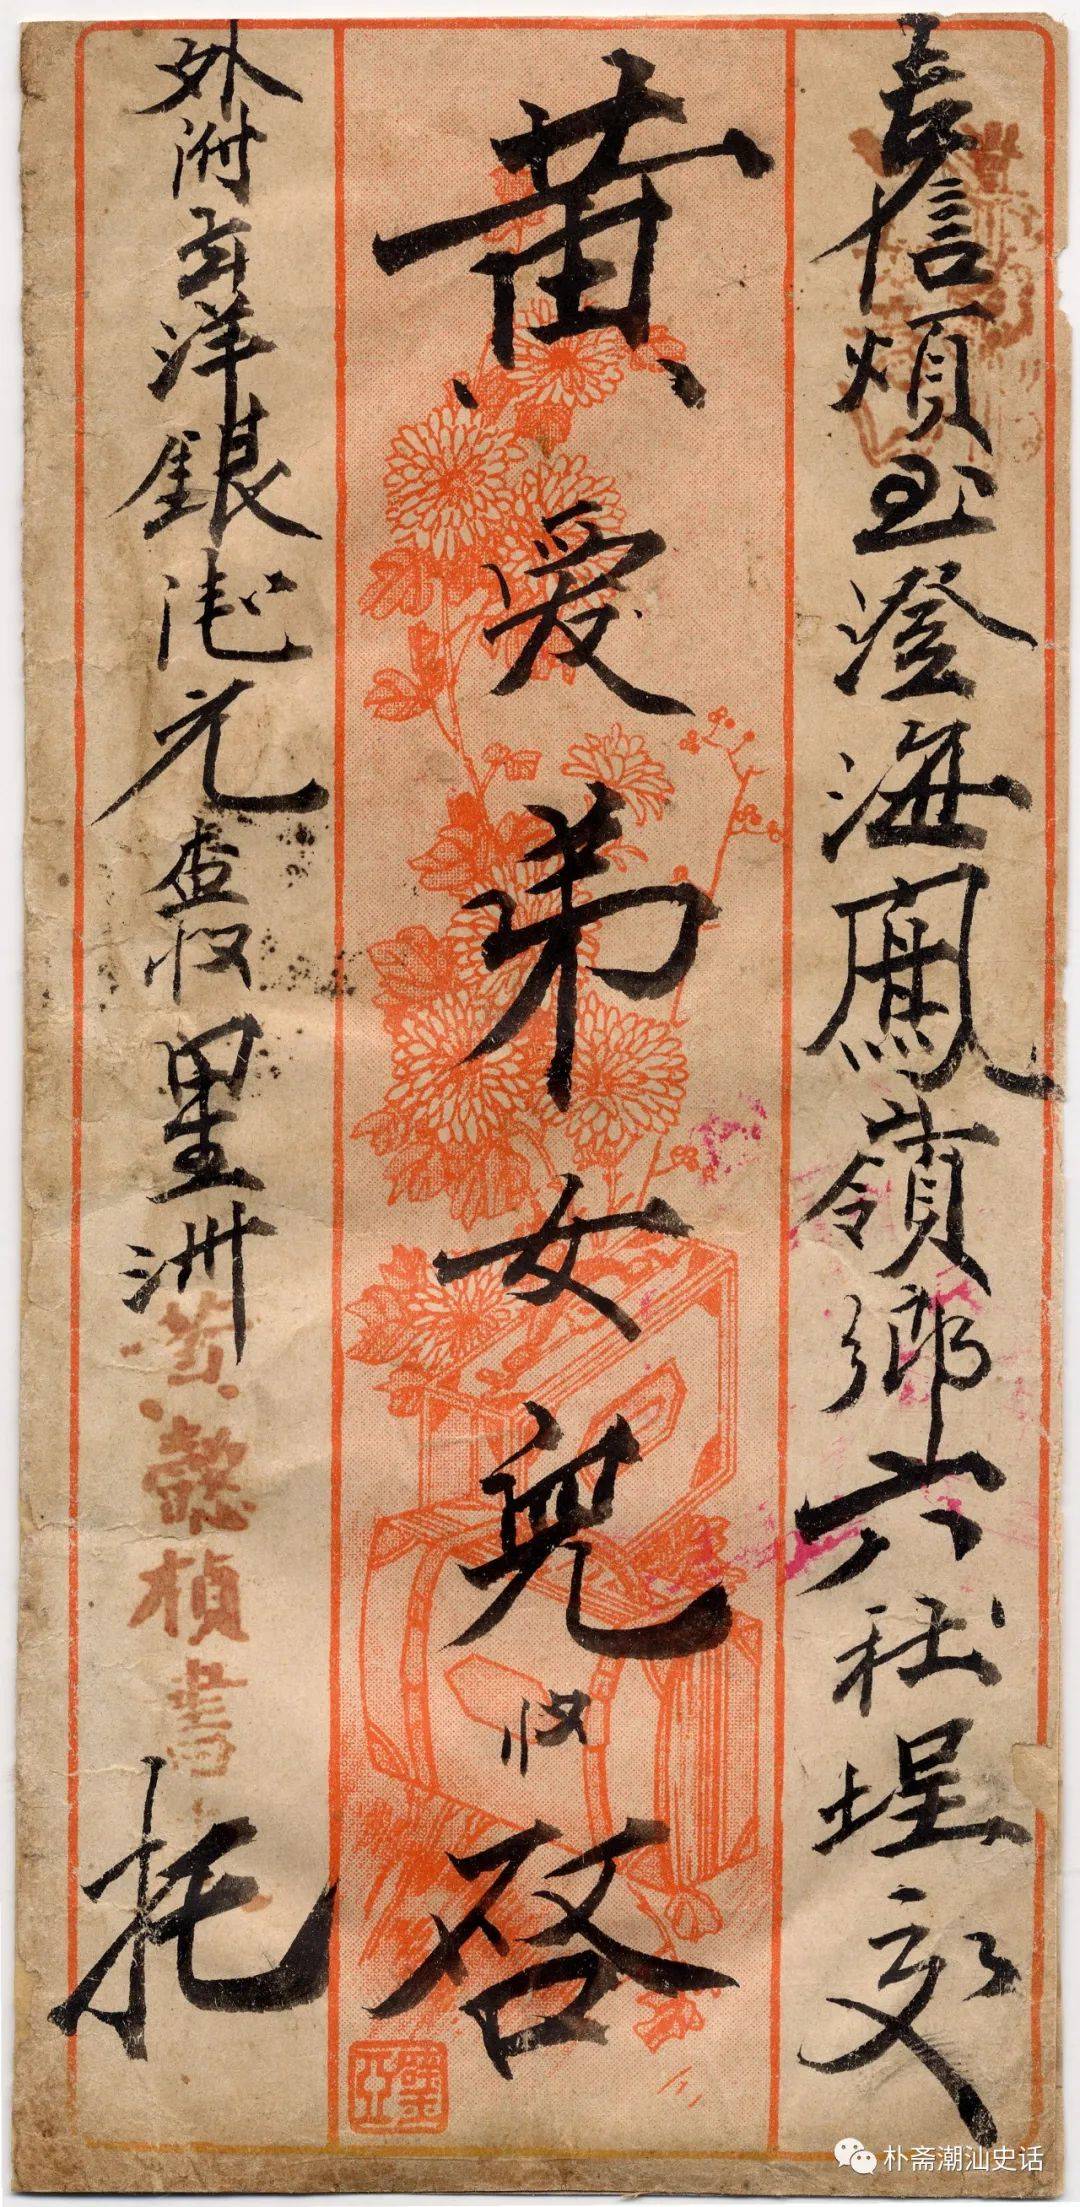 吉信煩至澄海鳳嶺鄉六社埕交
黄愛弟女兒收啓
外附去洋銀元查收里洲托
黄懿楨書
朴斋潮汕史话